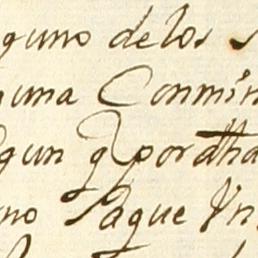 guno de los
guna Conmin
gun q por dha
no Pague Vn